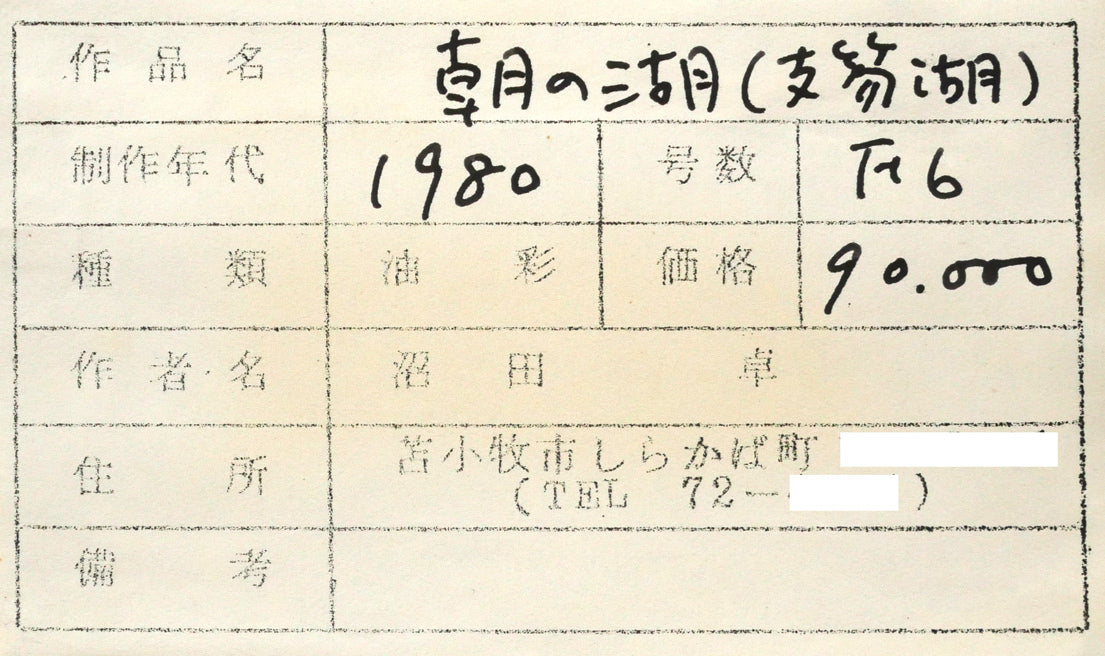 作品名 朝の湖(支笏湖)
制作年代 1980 号数 F6
種類 油彩 価格 90.000
作者名 沼田 卓
住所 苫小牧市しらかば町
(TEL 72―)
備考